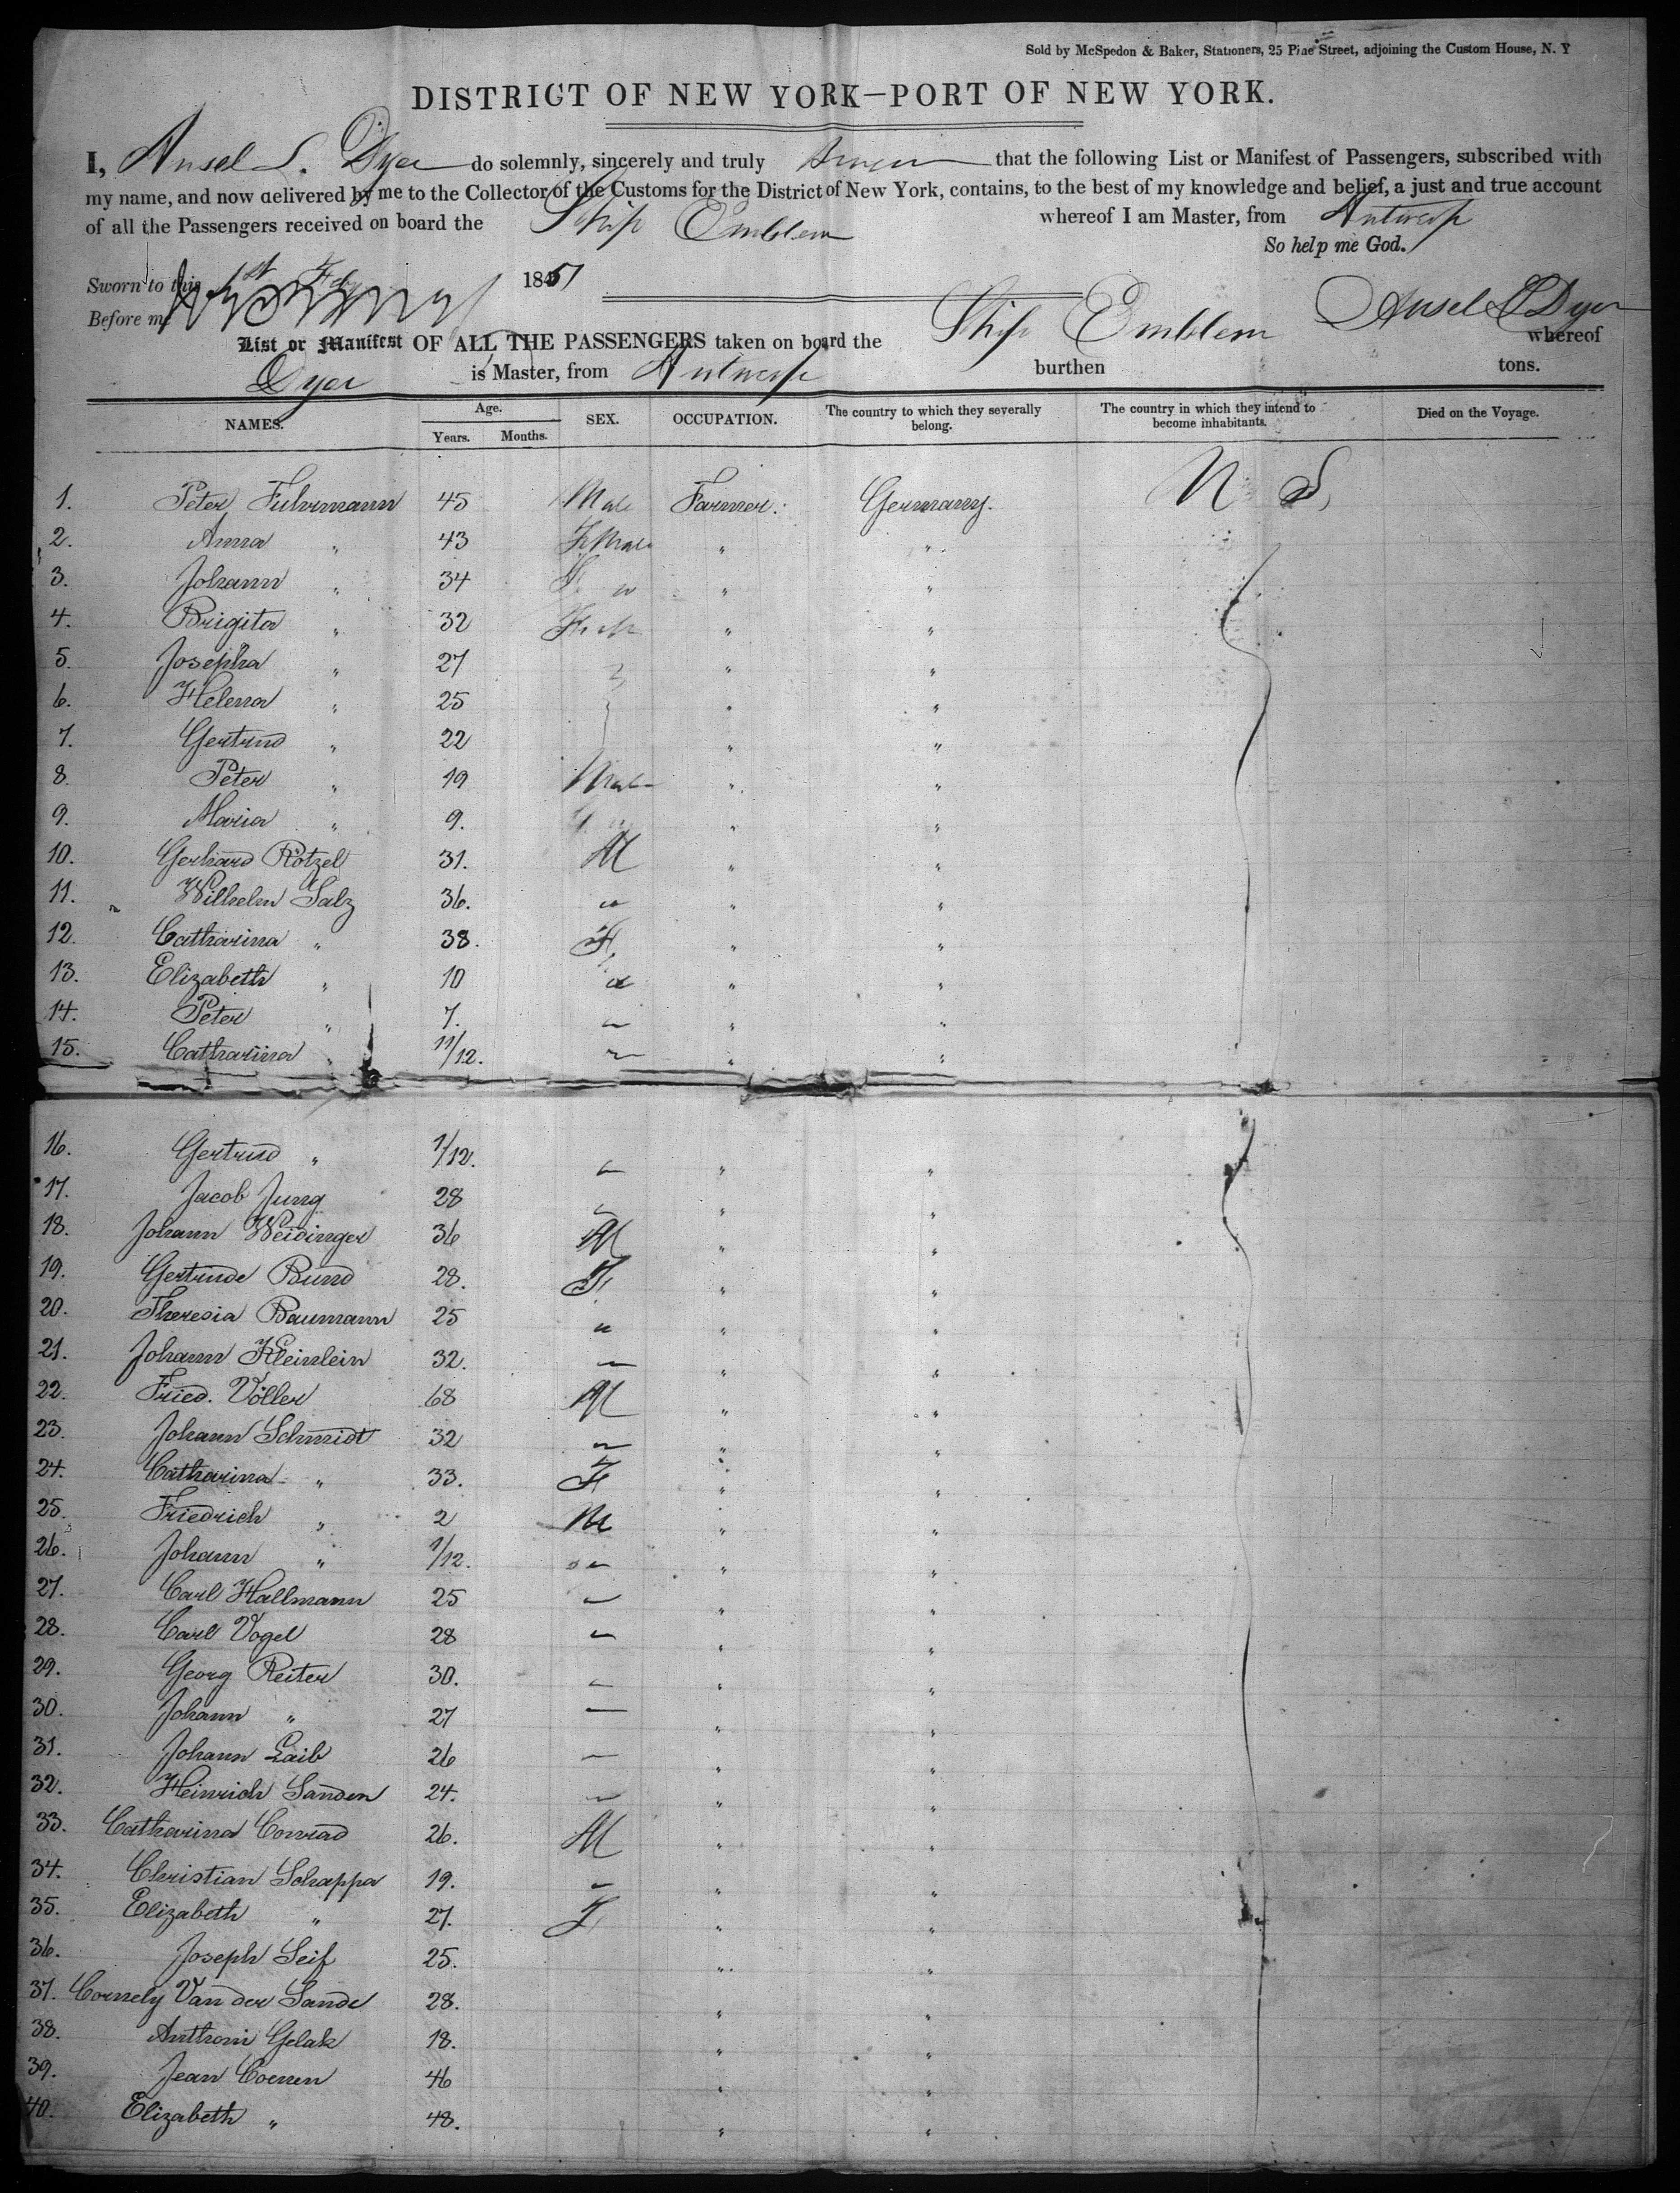 Sold by McSpedon & Baker, Stationers, 25 Pine Street, adjoining the Custom House, N. Y
DISTRICT OF NEW YORK—PORT OF NEW YORK.
I, Ansel L. Dyer do solemnly, sincerely and truly swear that the following List or Manifest of Passengers, subscribed with
my name, and now delivered by me to the Collector of the Customs for the District of New York, contains, to the best of my knowledge and belief, a just and true account
of all the Passengers received on board the Ship Emblem whereof I am Master, from Antwerp
So help me God.
Sworn to this 1st Feby 1851
Before me
Ansel L Dyer
List or Manifest OF ALL THE PASSENGERS taken on board the Ship Emblem whereof
Dyer is Master, from Antwerp burthen tons.
NAMES. Age. Years. Months. SEX. OCCUPATION. The country to which they severally belong. The country in which they intend to become inhabitants. Died on the Voyage.
1. Peter Fuhrmann 45 Male Farmer. Germany. U S
2. Anna " 43 FeMale " "
3. Johann " 34 " "
4. Brigita " 32 " "
5. Josepha " 27 " "
6. Helena " 25 " "
7. Gertrud " 22 " "
8. Peter " 19 Male " "
9. Maria " 9. " "
10. Gerhard Rötzel 31. M " "
11. Wilhelm Salz 36. " " "
12. Catharina " 38. F " "
13. Elizabeth " 10 " " "
14. Peter " 7. " " "
15. Catharina " 11/12. " " "
16. Gertrud " 1/12. " " "
17. Jacob Jung 28 " " "
18. Johann Weidinger 36 M " "
19. Gertrude Bund 28. F. " "
20. Theresia Baumann 25 " " "
21. Johann Kleinlein 32. " " "
22. Fried. Völler 68 M " "
23. Johann Schmidt 32 " " "
24. Catharina " 33. F " "
25. Friedrich " 2 M " "
26. Johann " 1/12. " " "
27. Carl Hallmann 25 " " "
28. Carl Vogel 28 " " "
29. Georg Reiter 30. " " "
30. Johann " 27 " " "
31. Johann Laib 26 " " "
32. Heinrich Sanden 24. " " "
33. Catharina Conrad 26. M " "
34. Christian Schappa 19. " " "
35. Elizabeth " 27. F " "
36. Joseph Seif 25. " "
37. Cornely Van der Sande 28. " "
38. Anthoni Gelak 18. " "
39. Jean Coenen 46 " "
40. Elizabeth " 48. " "